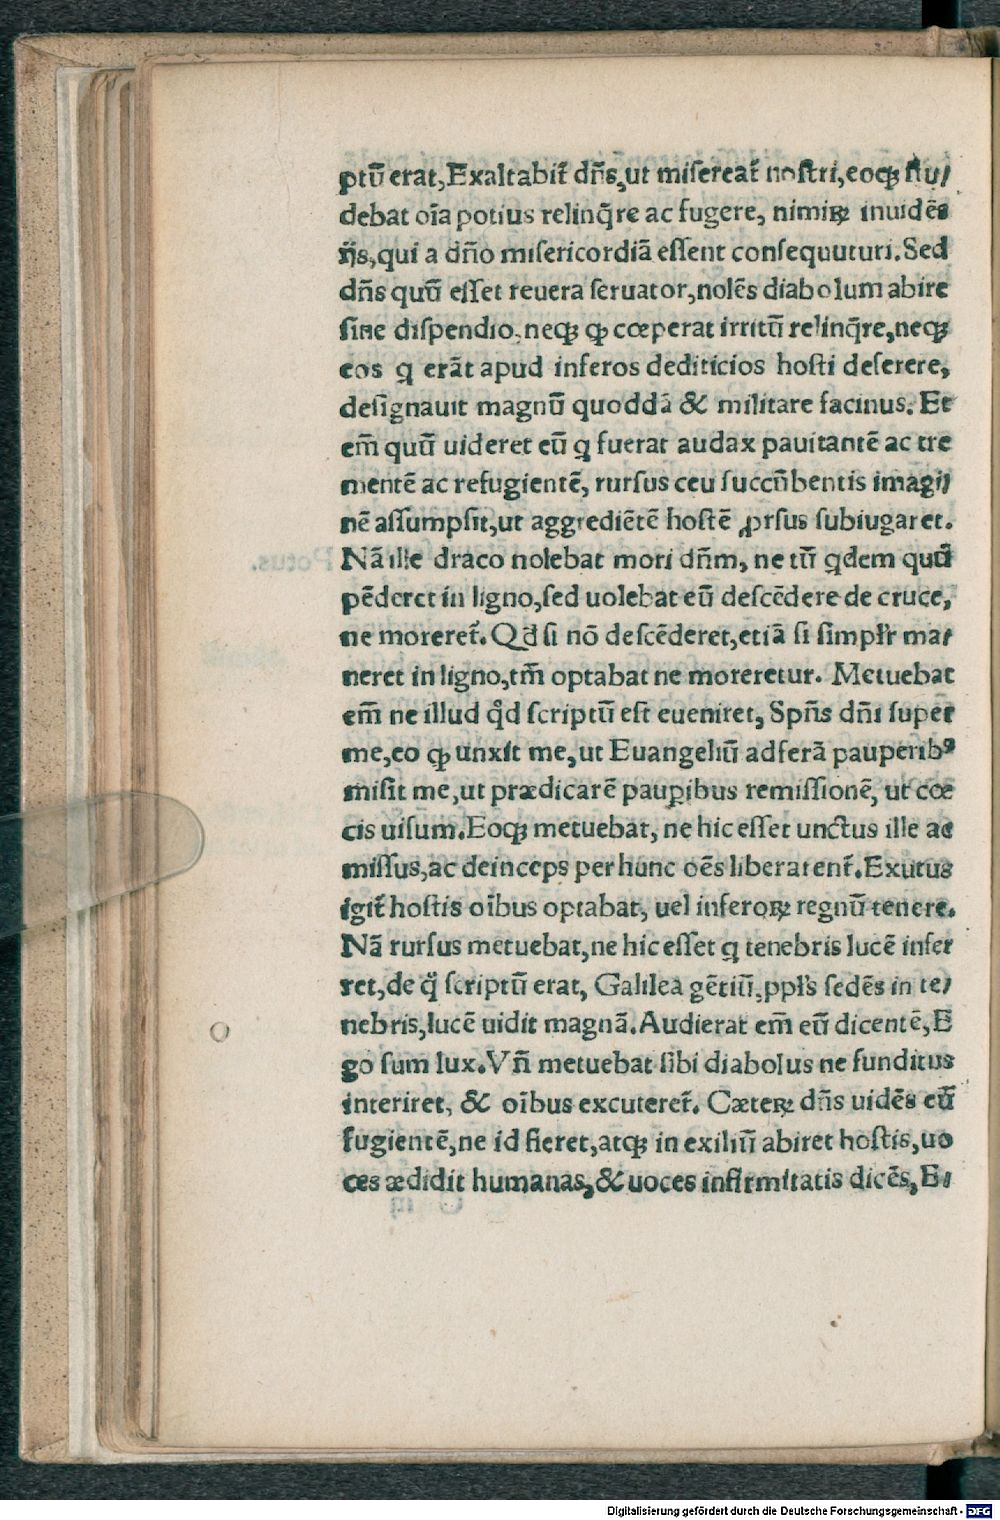 ptũ erat, Exaltabit̃ dñs, ut misereat̃ nostri, eoqꝫ stu/
debat oĩa potius relinq̃re ac fugere, nimiꝝ inuidẽs
ijs, qui a dño misericordiã essent consequuturi. Sed
dñs quũ esset reuera seruator, nolẽs diabolum abire
sine dispendio, neqꝫ ꝙ cœperat irritũ relinq̃re, neqꝫ
eos q erãt apud inferos dediticios hosti deserere,
designauit magnũ quoddã & militare facinus. Et
em̃ quũ uideret eũ q fuerat audax pauitantẽ ac tre
mentẽ ac refugientẽ, rursus ceu succũbentis imagi/
nẽ assumpsit, ut aggrediẽtẽ hostẽ ꝓrsus subiugaret.
Nã ille draco nolebat mori dñm, ne tũ qdem quũ
pẽderet in ligno, sed uolebat eũ descẽdere de cruce,
ne moreret̃. Qđ si nõ descẽderet, etiã si simpłr ma/
neret in ligno, tm̃ optabat ne moreretur. Metuebat
em̃ ne illud qđ scriptũ est eueniret, Spñs dñi super
me, eo ꝙ unxit me, ut Euangeliũ adferã pauperibꝰ
misit me, ut prædicarẽ paupibus remissionẽ, ut cœ
cis uisum. Eoqꝫ metuebat, ne hic esset unctus ille ac
missus, ac deinceps per hunc oẽs liberarent̃. Exutus
igit̃ hostis oĩbus optabat, uel inferoꝝ regnũ tenere.
Nã rursus metuebat, ne hic esset q tenebris lucẽ infer
ret, de q̃ scriptũ erat, Galilea gẽtiũ, ppłs sedẽs in te/
nebris, lucẽ uidit magnã. Audierat em̃ eũ dicentẽ, E
go sum lux. Vñ metuebat sibi diabolus ne funditus
interiret, & oĩbus excuteret̃. Cæteꝝ dñs uidẽs eũ
fugientẽ, ne id fieret, atqꝫ in exiliũ abiret hostis, uo
ces ædidit humanas, & uoces infirmitatis dicẽs, E/
Digitalisierung gefördert durch die Deutsche Forschungsgemeinschaft - DFG